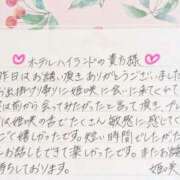 ホテルハイランドの貴方様
昨日はお誘い頂きありがとうございました
お出掛け[り]帰りに姫咲に会いに来てくれて
は前から会ってみたかったと言って頂き、プレ
は姫咲の舌でたくさん敏感に反応してく
て嬉しかったです。短い時間でしたがた
お話もできて楽しかったです。またお誘
待ちしております。
姫咲